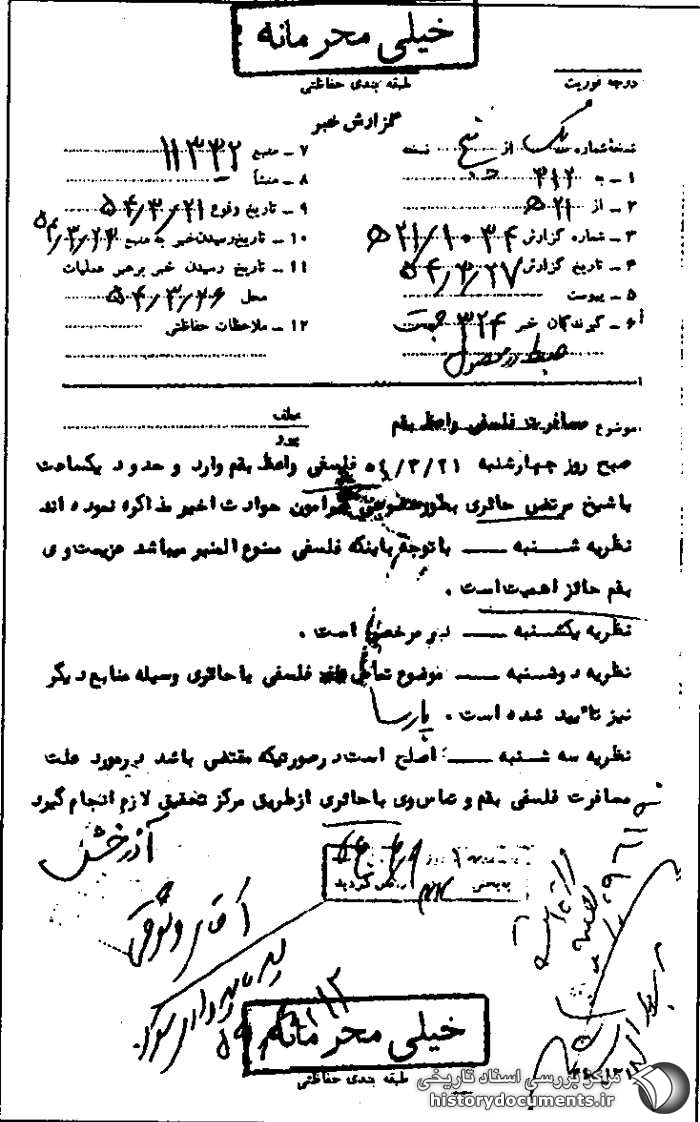 خیلی محرمانه
طبقه بندی حفاظتی
درجه فوریت
گزارش خبر
نسخهٔ شماره یک از پنج نسخه
۱ ـ به ۳۱۲
۲ ـ از ۲۱ ه
۳ ـ شماره گزارش ۲۱/۱۰۳۴ ه
۴ ـ تاریخ گزارش ۵۴/۳/۲۷
۵ ـ پیوست
۶ ـ گیرندگان خبر ۳۲۴ جهت
ضبط در محصول
۷ ـ منبع ۱۱۳۳۲
۸ ـ منشأ ـ
۹ ـ تاریخ وقوع ۵۴/۳/۲۱
۱۰ ـ تاریخ رسیدن خبر به منبع ۵۴/۳/۲۳
۱۱ ـ تاریخ رسیدن خبر برهبر عملیات
محل ۵۴/۳/۲۶
۱۲ ـ ملاحظات حفاظتی
موضوع مسافرت فلسفی واعظ بقم
عطف
پیرو
صبح روز چهارشنبه ۵۴/۳/۲۱ فلسفی واعظ بقم وارد و حدود یکساعت
با شیخ مرتضی حائری بطور خصوصی پیرامون حوادث اخیر مذاکره نموده اند
نظریه شنبه ـــ با توجه باینکه فلسفی ممنوع المنبر میباشد عزیمت وی
بقم حائز اهمیت است .
نظریه یکشنبه ـــ خبر صحیح است .
نظریه دوشنبه ـــ موضوع تماس فلسفی با حائری وسیله منابع دیگر
نیز تائید شده است . پارسا
نظریه سه شنبه ـــ اصلح است در صورتیکه مقتضی باشد در مورد علت
مسافرت فلسفی بقم و تماس وی با حائری از طریق مرکز تحقیق لازم انجام گیرد
آذرخش
آقای وثوقی
خیلی محرمانه
طبقه بندی حفاظتی
مرکز بررسی اسناد تاریخی
historydocuments.ir